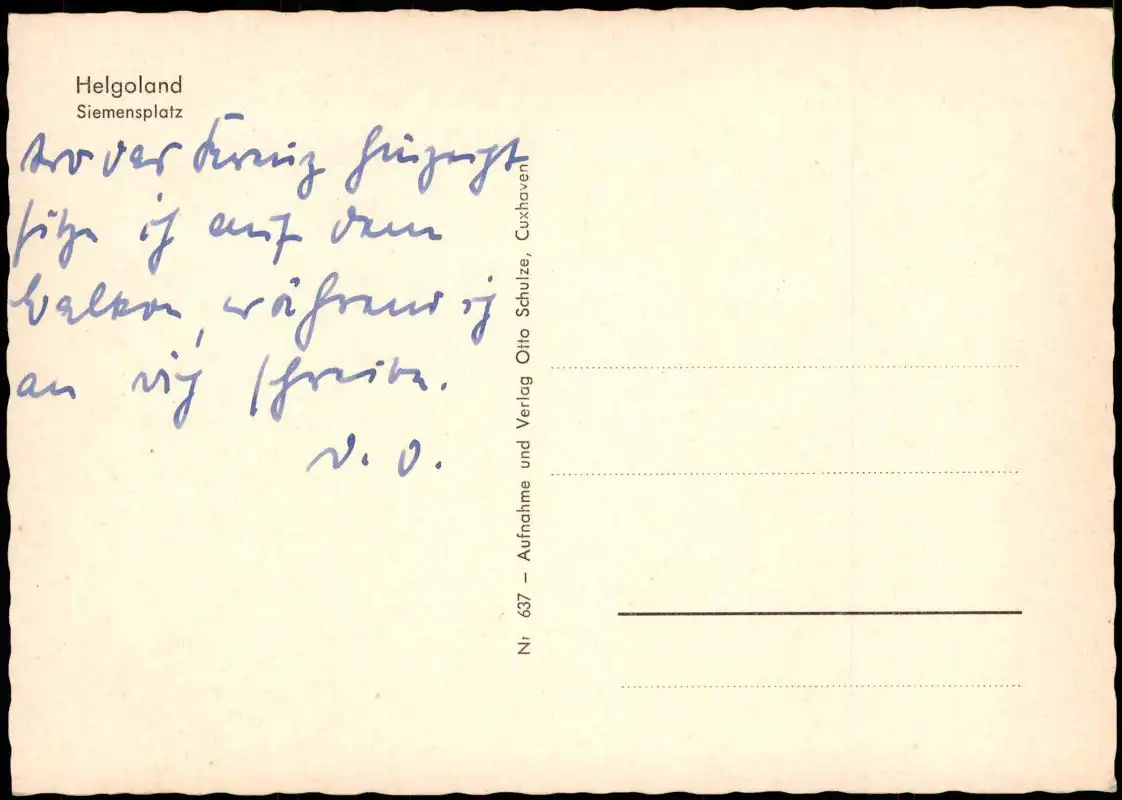 Helgoland
Siemensplatz
wo das Kreuz hinzeigt
sitze ich auf dem
Balkon, während ich
an dich schreibe.
D. O.
Nr 637 – Aufnahme und Verlag Otto Schulze, Cuxhaven